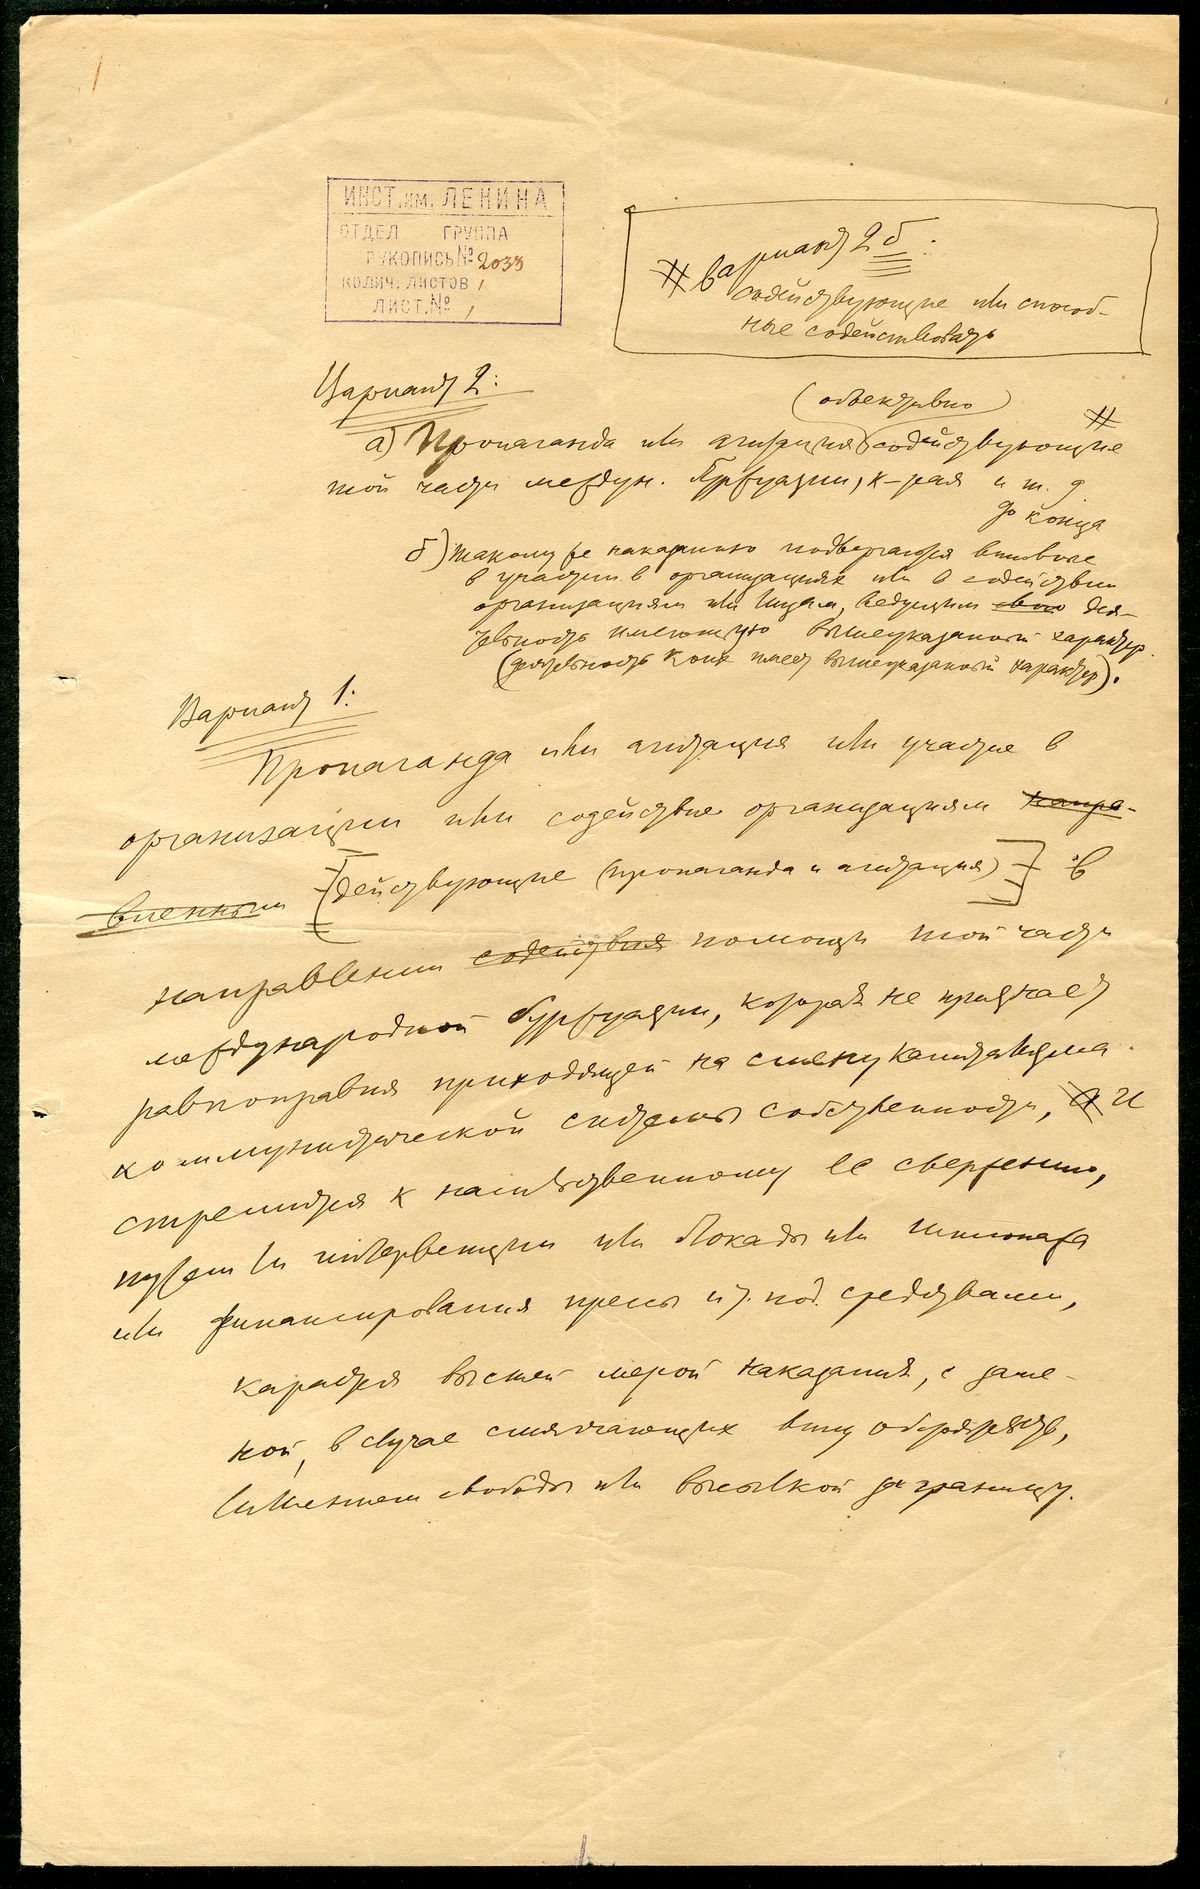 ИНСТ. им. ЛЕНИНА
ОТДЕЛ ГРУППА
РУКОПИСЬ № 2033
КОЛИЧ. ЛИСТОВ 1
ЛИСТ. № 1
# вариант 2б:
содействующие или способ-
ные содействовать
Вариант 2:
(объективно)
#
а) Пропаганда или агитация содействующие
той части междун. буржуазии, к-рая и т. д.
до конца
б) такому же наказанию подвергаются виновные
в участии в организациях или в содействии
организациям или лицам, ведущим свою дея-
тельность имеющую вышеуказанный характер.
(деятельность коих имеет вышеуказанный характер).
Вариант 1:
Пропаганда или агитация или участие в
организации или содействие организациям напра-
вленным [действующие (пропаганда и агитация)] в
направлении содействия помощи той части
международной буржуазии, которая не признает
равноправия приходящей на смену капитализма
коммунистической системы собственности, а и
стремится к насильственному ее свержению,
путем ли интервенции или блокады или шпионажа
или финансирования прессы и т. под. средствами,
карается высшей мерой наказания, с заме-
ной, в случае смягчающих вину обстоятельств,
лишением свободы или высылкой за границу.